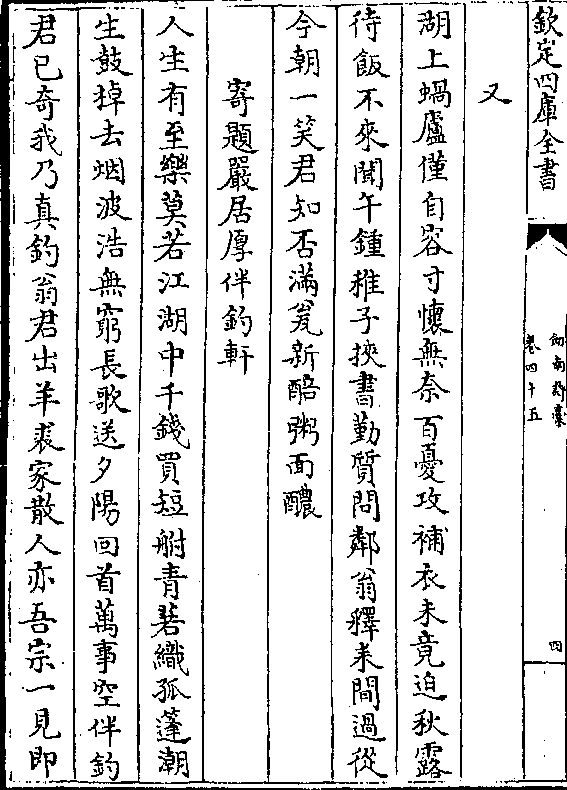 欽定四庫全書
劍南詩槀
卷四十五
四
又
湖上蝸廬僅自容寸懷無奈百憂攻補衣未竟迫秋露
待飯不來聞午鍾稚子挾書勤質問鄰翁釋耒間過從
今朝一笑君知否滿瓮新醅粥面醲
寄題嚴居厚伴釣軒
人生有至樂莫若江湖中千錢買短艄青蒻織孤蓬潮
生鼓棹去烟波浩無窮長歌送夕陽回首萬事空伴釣
君已奇我乃真釣翁君出羊裘家散人亦吾宗一見即